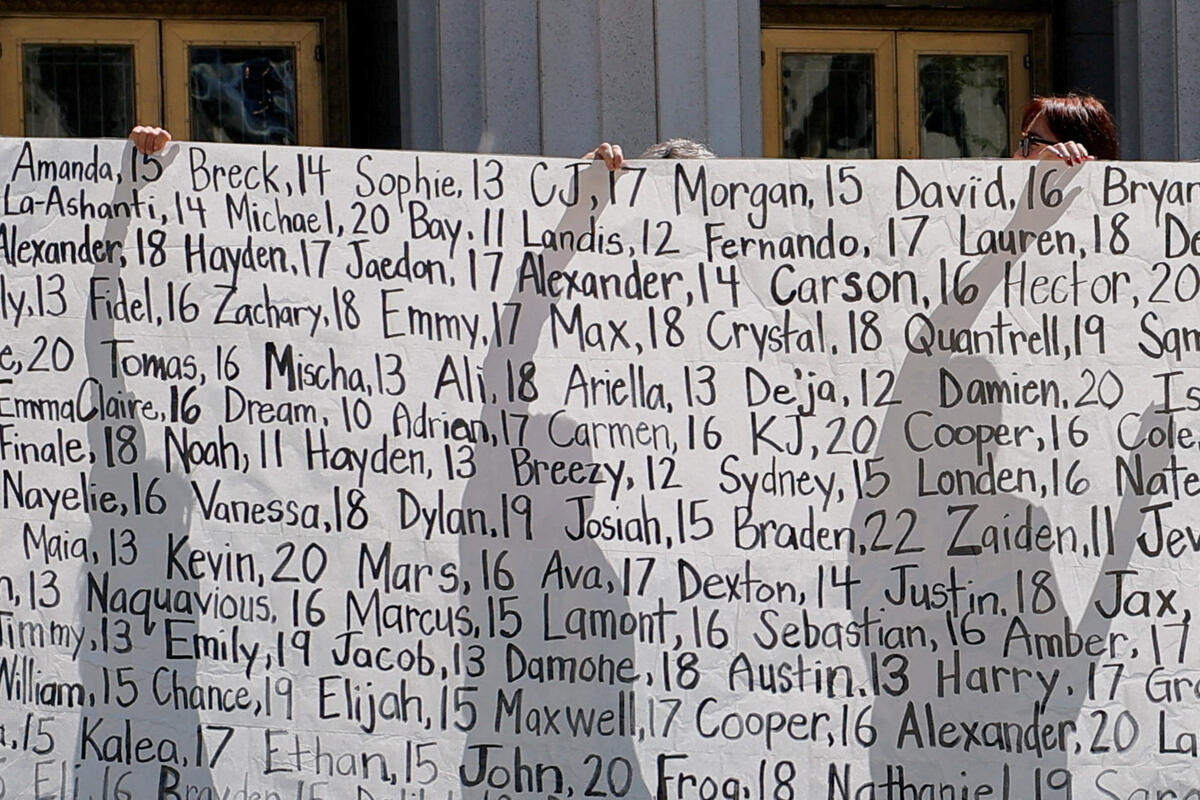 Amanda, 15 Breck, 14 Sophie, 13 CJ, 17 Morgan, 15 Davïd, 16 Bryan
La-Ashanti, 14 Michael, 20 Bay, 11 Landis, 12 Fernando, 17 Lauren, 18 De
Alexander, 18 Hayden, 17 Jaedon, 17 Alexander, 14 Carson, 16 Hector, 20
ly, 13 Fidel, 16 Zachary, 18 Emmy, 17 Max, 18 Crystal, 18 Quantrell, 19 Sam
e, 20 Tomas, 16 Mischa, 13 Ali, 18 Ariella, 13 De'ja, 12 Damien, 20 Is
EmmaClaire, 16 Dream, 10 Adrian, 17 Carmen, 16 KJ, 20 Cooper, 16 Cole,
Finale, 18 Noah, 11 Hayden, 13 Breezy, 12 Sydney, 15 Londen, 16 Nate
Nayelie, 16 Vanessa, 18 Dylan, 19 Josiah, 15 Braden, 22 Zaiden, 11 Jev
Maia, 13 Kevin, 20 Mars, 16 Ava, 17 Dexton, 14 Justin, 18 Jax,
n, 13 Naquavious, 16 Marcus, 15 Lamont, 16 Sebastian, 16 Amber, 17
Timmy, 13 Emily, 19 Jacob, 13 Damone, 18 Austin, 13 Harry, 17 Gr
William, 15 Chance, 19 Elijah, 15 Maxwell, 17 Cooper, 16 Alexander, 20 La
a, 15 Kalea, 17 Ethan, 15 John, 20 Frog, 18 Nathaniel, 19
Eli, 16 Brayden, 15